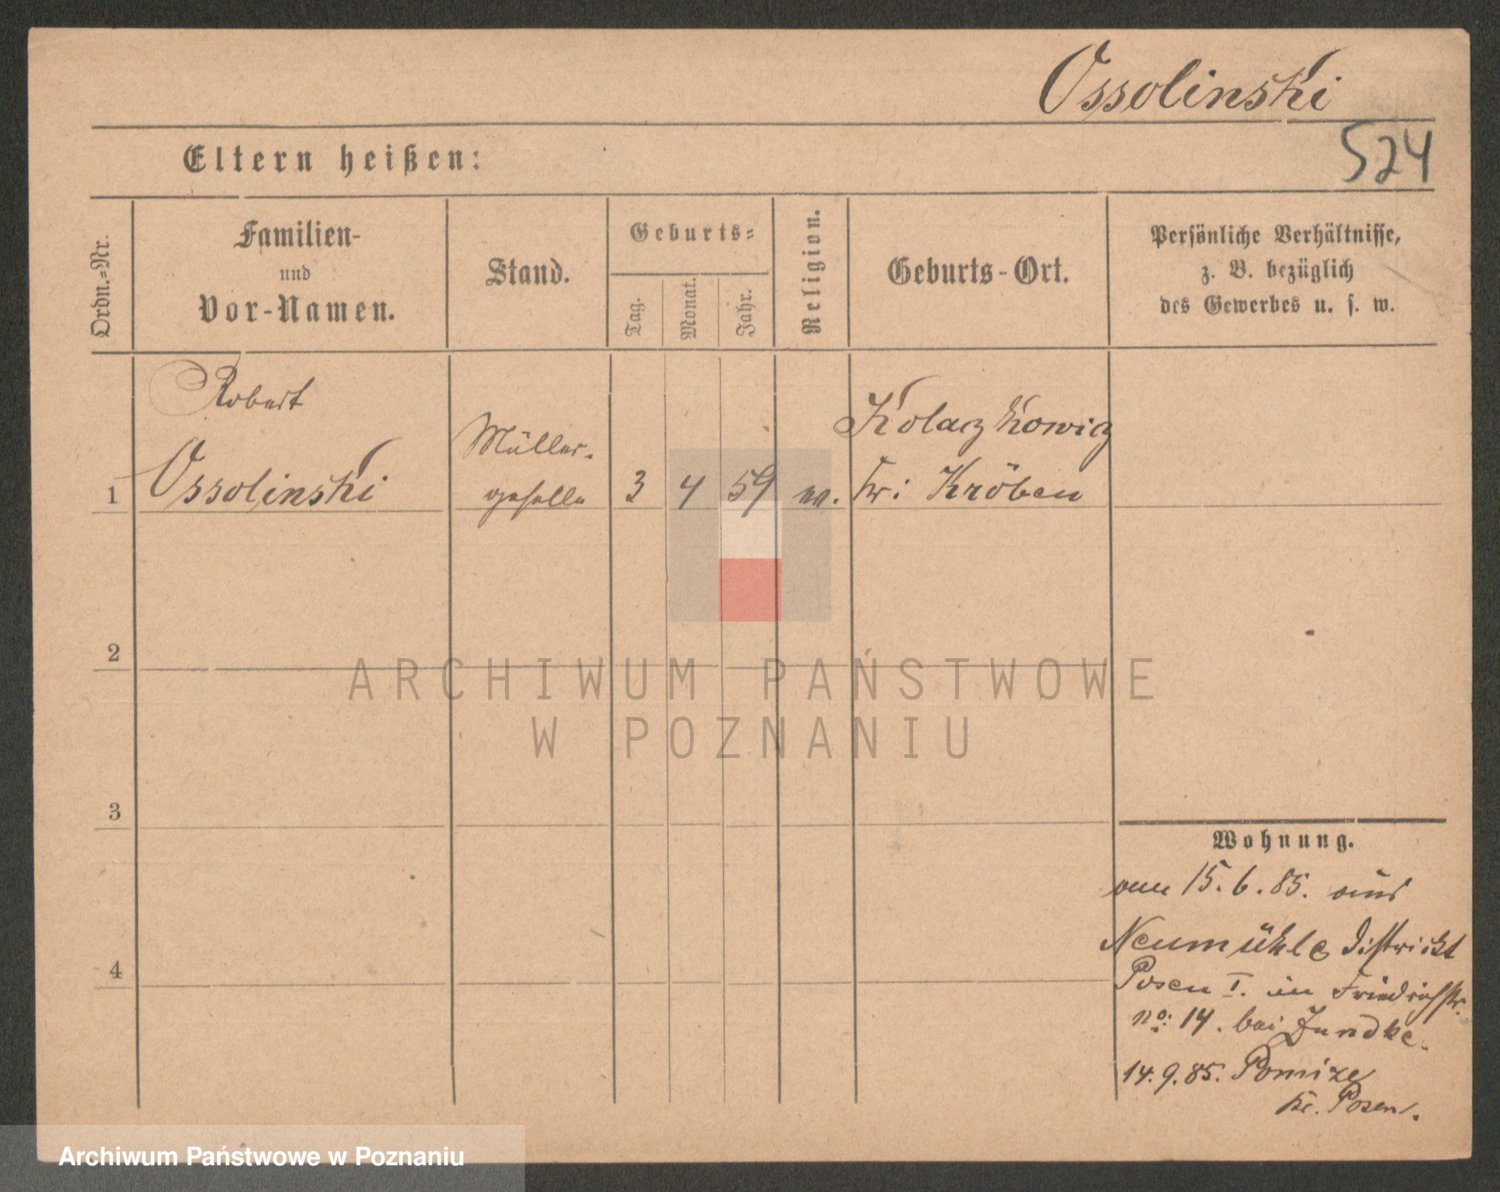 Ossolinski
524
Eltern heißen:
Ordn.-Nr.
Familien-
und
Vor-Namen.
Stand.
Geburts-
Tag.
Monat.
Jahr.
Religion.
Geburts-Ort.
Persönliche Verhältnisse,
z. B. bezüglich
des Gewerbes u. s. w.
1
Robert
Ossolinski
Müller-
geselle
3
4
59
Kr: Kröben
2
3
4
Wohnung.
15.6.85. aus
Neumühle Distrikt
Posen I. in Friedrichstr.
No: 14. bei
14.9.85.
Kr. Posen.
ARCHIWUM PAŃSTWOWE
W POZNANIU
Archiwum Państwowe w Poznaniu